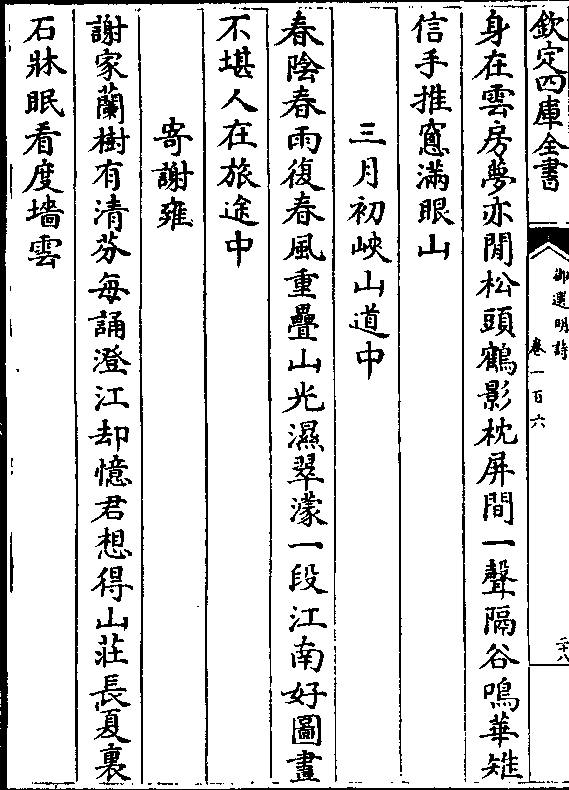 欽定四庫全書
御選明詩
卷一百六
二十八
身在雲房夢亦閒松頭鶴影枕屏間一聲隔谷鳴華雉
信手推窻滿眼山
三月初峽山道中
春陰春雨復春風重疊山光濕翠濛一段江南好圖畫
不堪人在旅途中
寄謝雍
謝家蘭樹有清芬每誦澄江却憶君想得山莊長夏裏
石牀眠看度墻雲